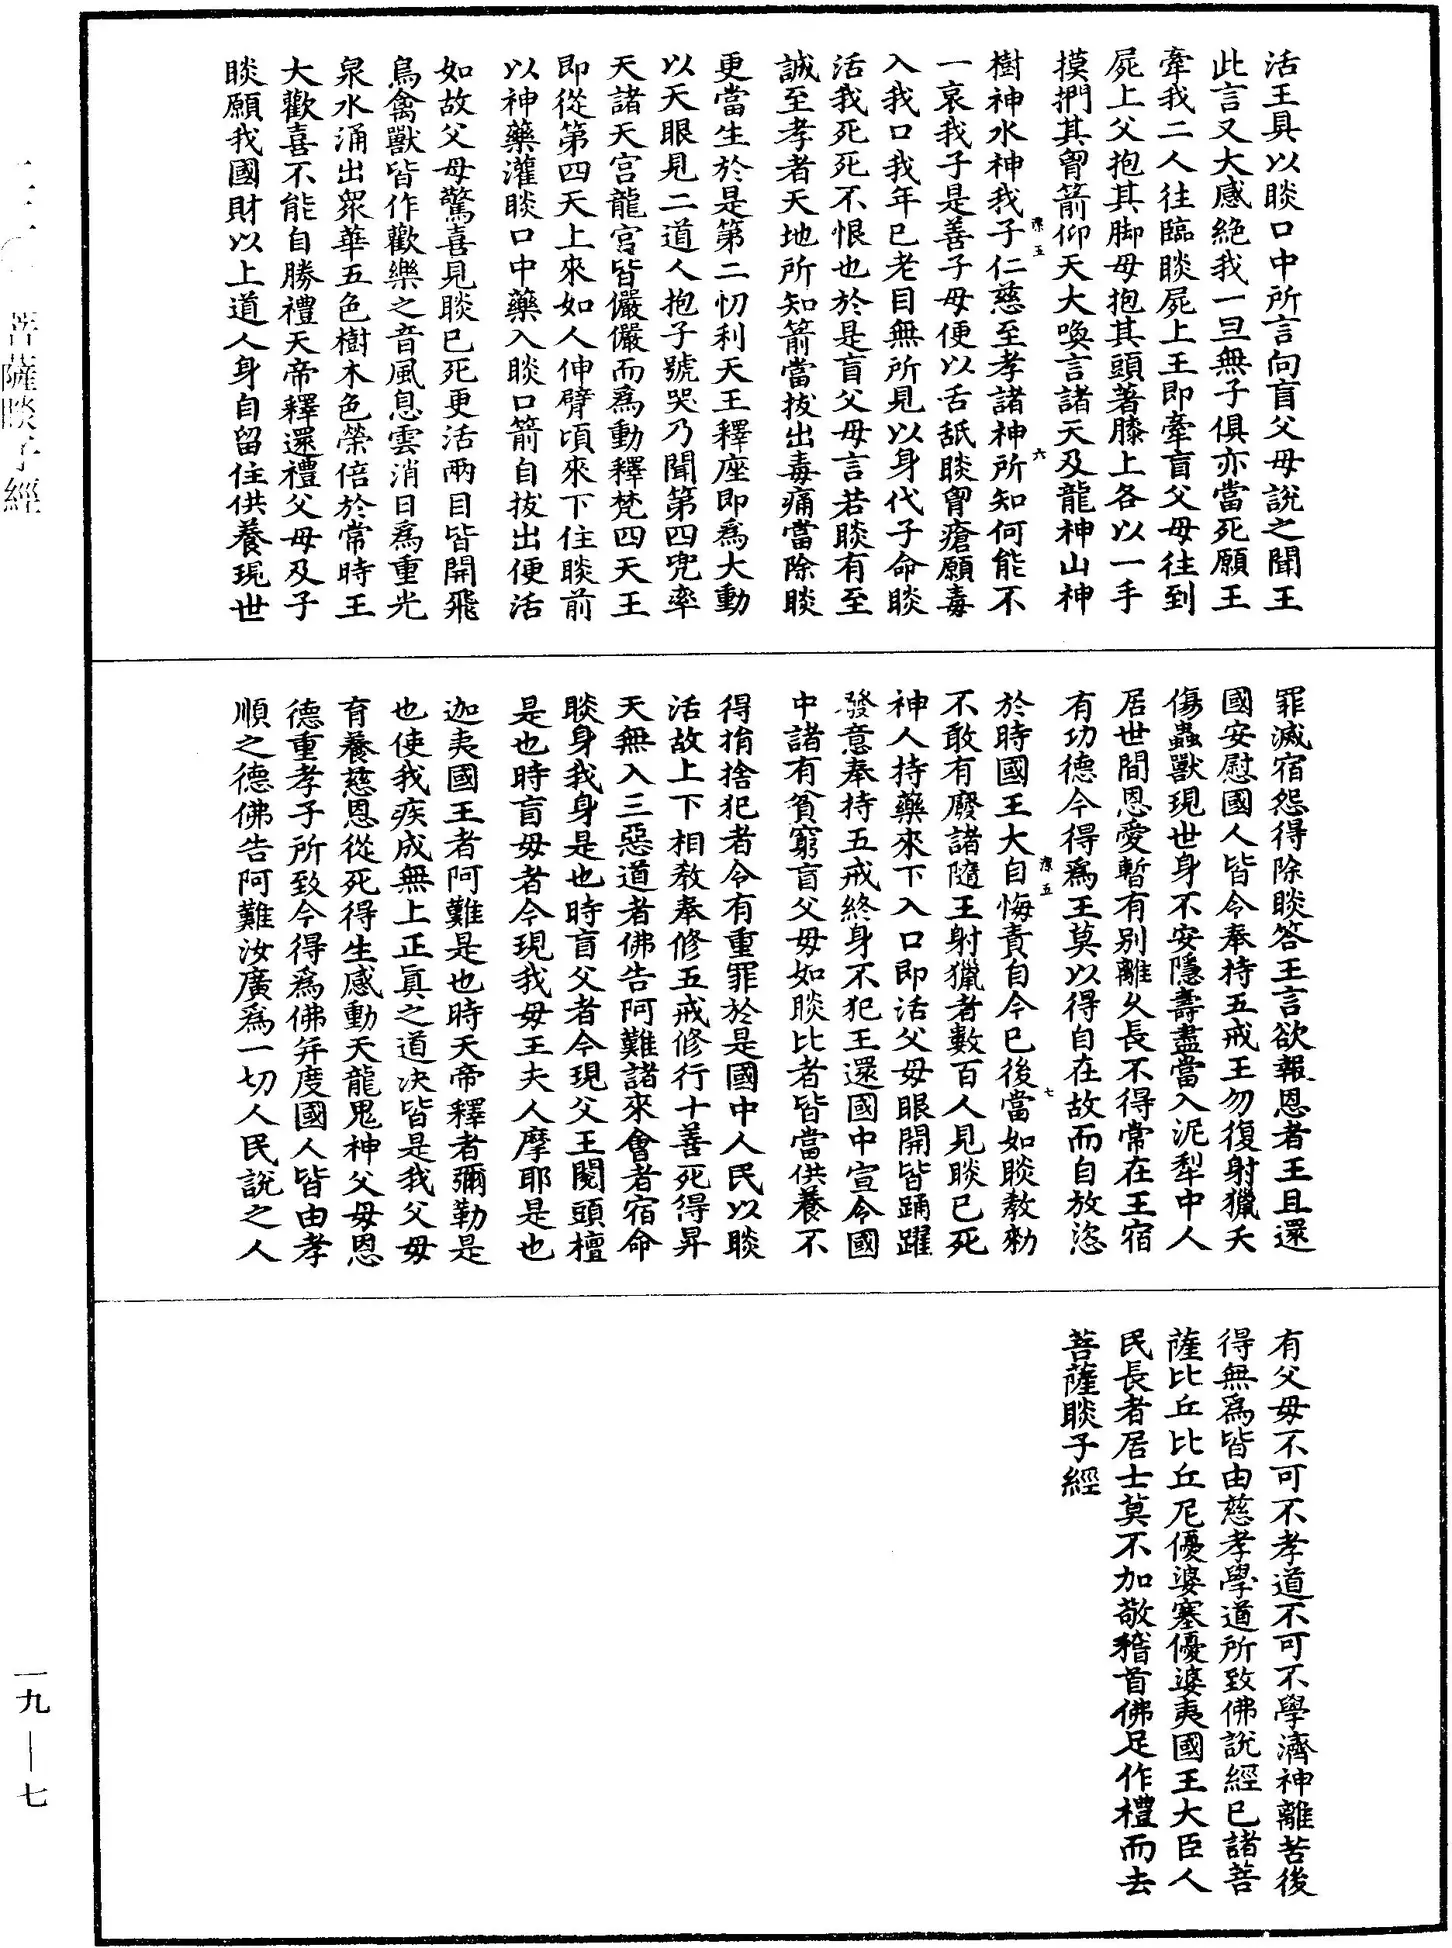 活王具以睒口中所言向盲父母說之聞王
此言又大感絶我一旦無子俱亦當死願王
牽我二人往臨睒屍上王即牽盲父母往到
屍上父抱其脚母抱其頭著膝上各以一手
摸捫其胷箭仰天大喚言諸天及龍神山神
樹神水神我子仁慈至孝諸神所知何能不
一哀我子是善子母便以舌舐睒胷瘡願毒
入我口我年已老目無所見以身代子命睒
活我死死不恨也於是盲父母言若睒有至
誠至孝者天地所知箭當拔出毒痛當除睒
更當生於是第二忉利天王釋座即爲大動
以天眼見二道人抱子號哭乃聞第四兜率
天諸天宮龍宮皆儼儼而爲動釋梵四天王
即從第四天上來如人伸臂頃來下住睒前
以神藥灌睒口中藥入睒口箭自拔出便活
如故父母驚喜見睒已死更活兩目皆開飛
鳥禽獸皆作歡樂之音風息雲消日爲重光
泉水涌出衆華五色樹木色榮倍於常時王
大歡喜不能自勝禮天帝釋還禮父母及子
睒願我國財以上道人身自留住供養現世
罪滅宿怨得除睒答王言欲報恩者王且還
國安慰國人皆令奉持五戒王勿復射獵夭
傷蟲獸現世身不安隱壽盡當入泥犁中人
居世間恩愛暫有别離久長不得常在王宿
有功德今得爲王莫以得自在故而自放恣
於時國王大自悔責自今已後當如睒教勑
不敢有廢諸隨王射獵者數百人見睒已死
神人持藥來下入口即活父母眼開皆踊躍
發意奉持五戒終身不犯王還國中宣令國
中諸有貧窮盲父母如睒比者皆當供養不
得捐捨犯者令有重罪於是國中人民以睒
活故上下相教奉修五戒修行十善死得昇
天無入三惡道者佛告阿難諸來會者宿命
睒身我身是也時盲父者今現父王閱頭檀
是也時盲母者今現我母王夫人摩耶是也
迦夷國王者阿難是也時天帝釋者彌勒是
也使我疾成無上正眞之道決皆是我父母
育養慈恩從死得生感動天龍鬼神父母恩
德重孝子所致今得爲佛并度國人皆由孝
順之德佛告阿難汝廣爲一切人民說之人
有父母不可不孝道不可不學濟神離苦後
得無爲皆由慈孝學道所致佛說經已諸菩
薩比丘比丘尼優婆塞優婆夷國王大臣人
民長者居士莫不加敬稽首佛足作禮而去
菩薩睒子經
菩薩睒子經
一九—七